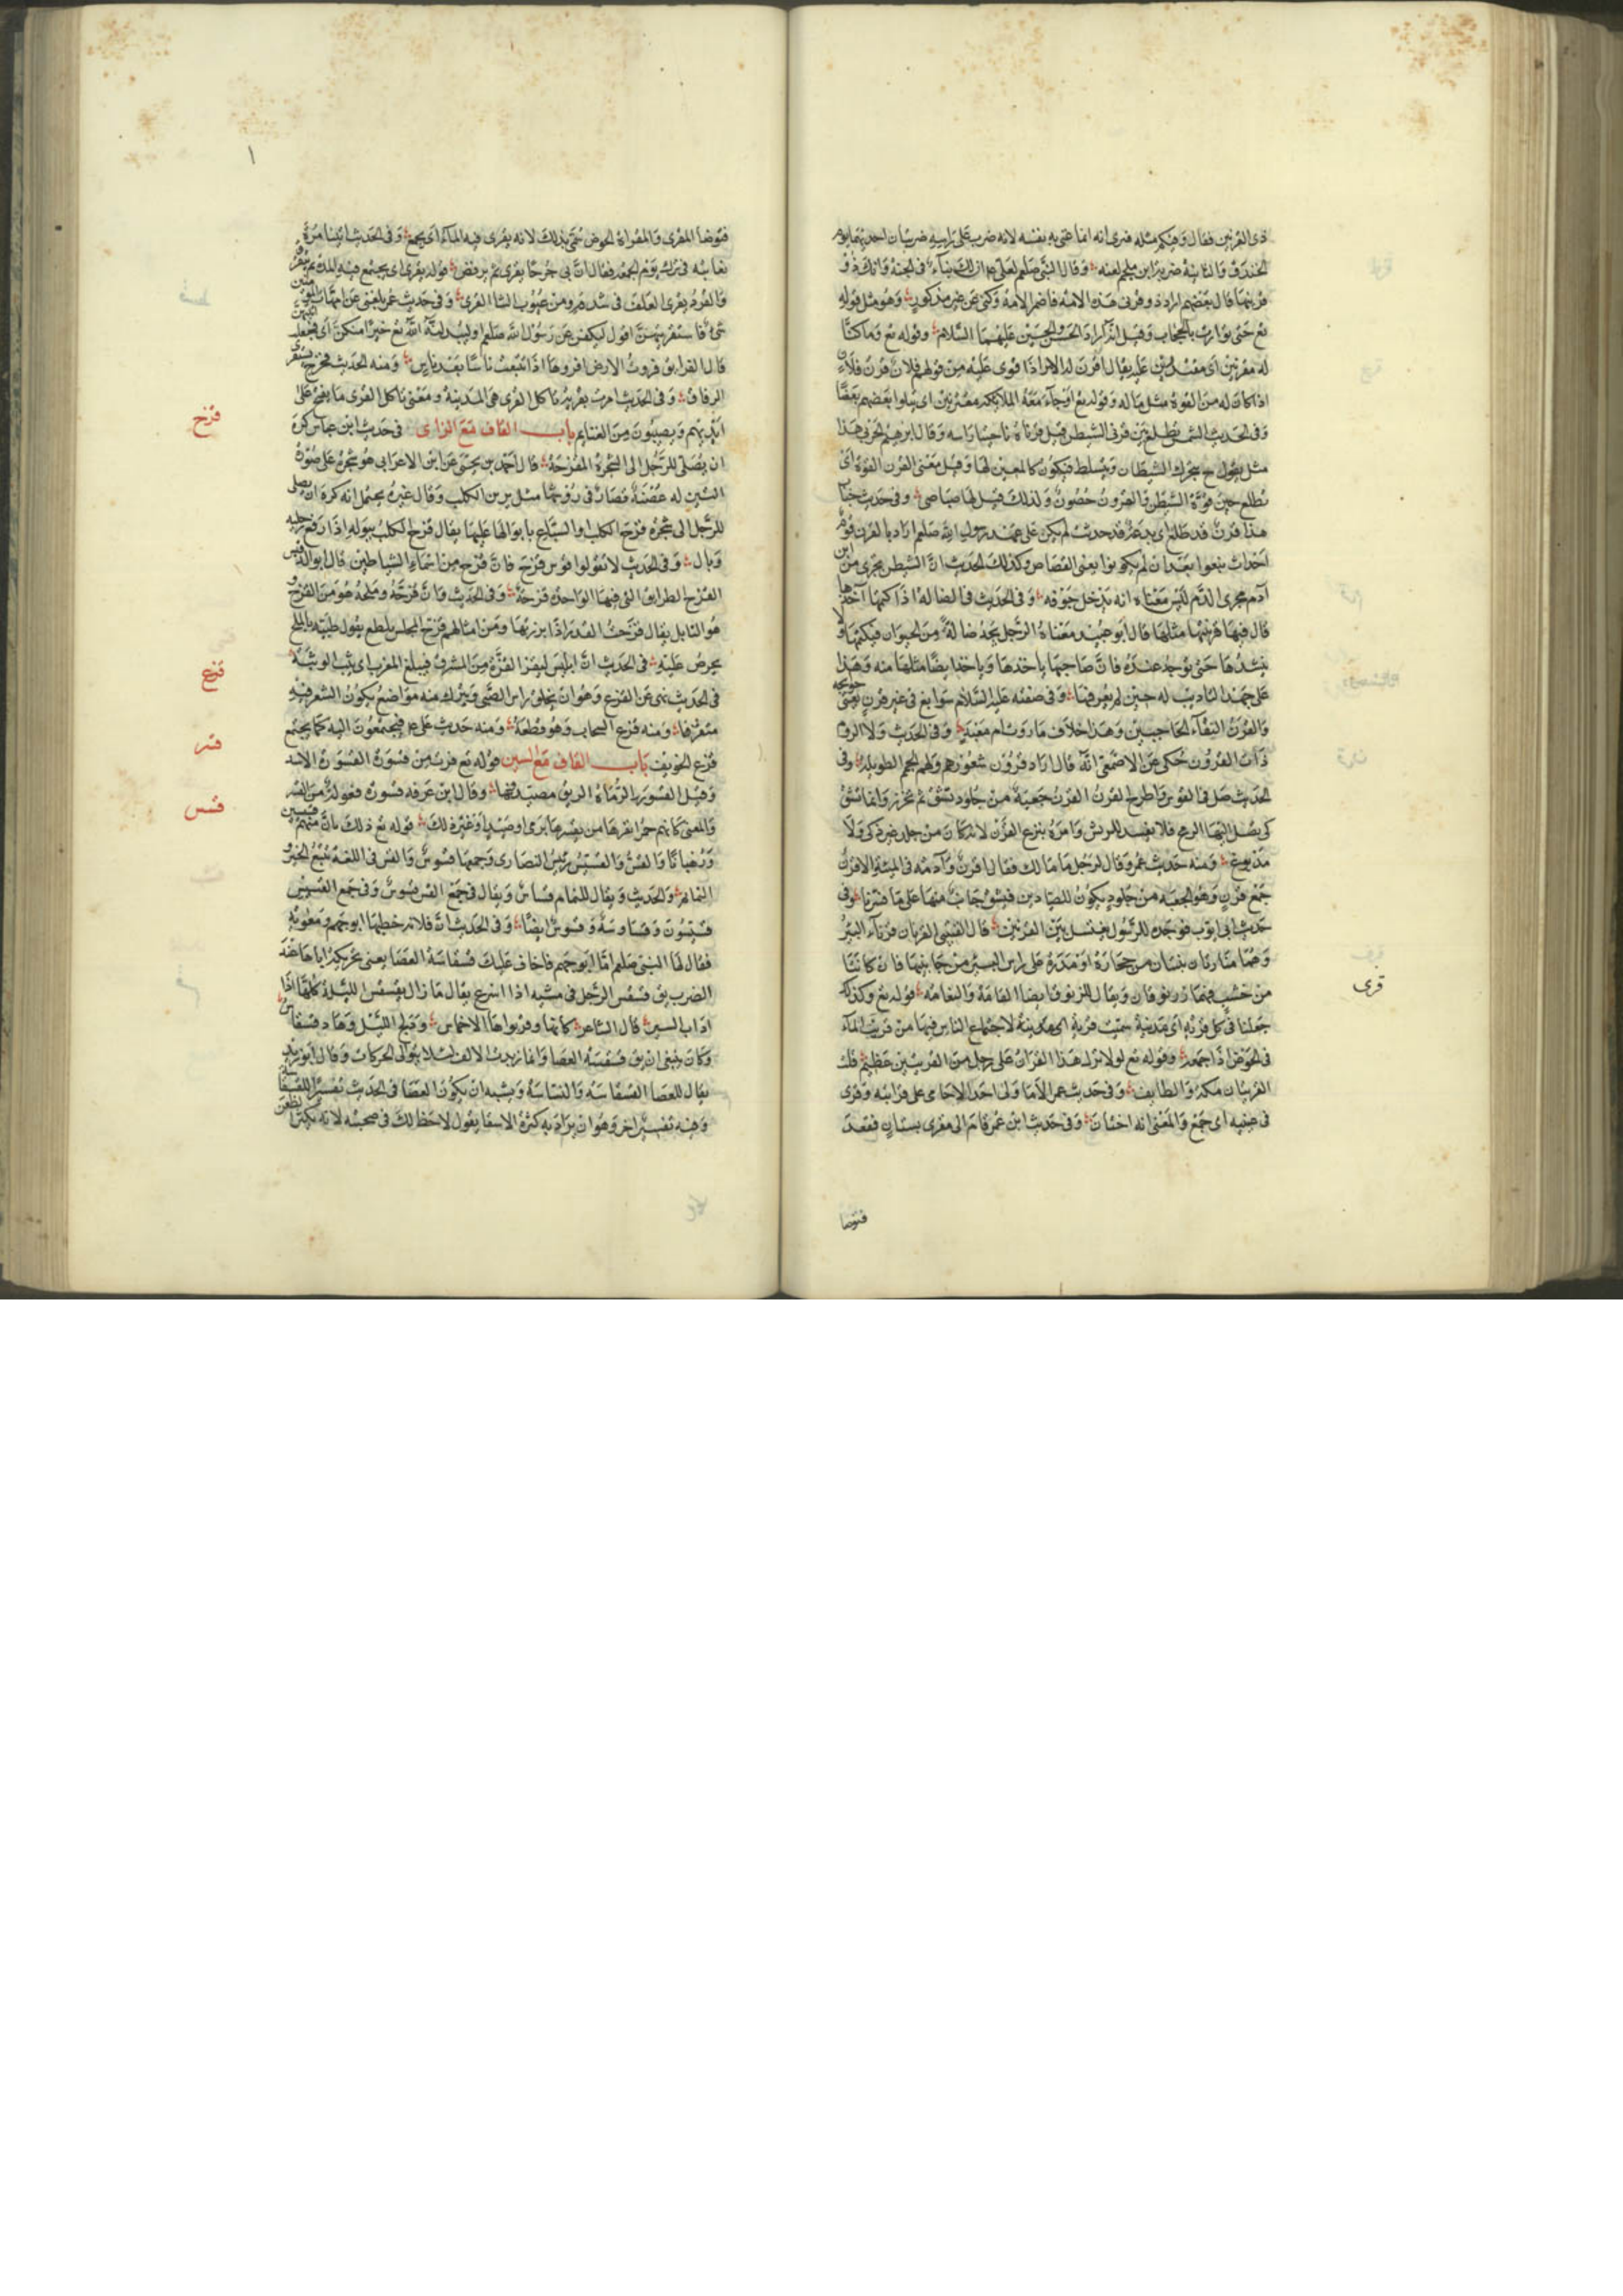 ذى القرنين فقال وفيكم مثله فنرى انه انما عنى به نفسه لانه ضرب على راسه ضربتان احديهما يوم
الخندق والثانية ضربة ابن ملجم لعنه وقال النبى صلعم لعلى ع ان لك بيتا فى الجنة وانك ذو
قرنيها قال بعضهم اراد ذو قرنى هذه الامة فاضمر الامة وكنى عن غير مذكور وهو مثل قوله
تع حتى توارت بالحجاب وقيل اراد الحسن والحسين عليهما السلام وقوله تع وما كنا
له مقرنين اى مقتدرين عليه يقال اقرن له الامر اذا قوى عليه من قولهم فلان قرن فلان
اذا كان له من القوة مثل ما له وقوله تع او جاء معه الملائكة مقترنين اى يتلوا بعضهم بعضا
وفى الحديث الشمس تطلع بين قرنى الشيطن قيل قرناه ناحيتا راسه وقال ابرهيم الحربى هذا
مثل يقول ح يتحرك الشيطان ويتسلط فيكون كالمعين لها وقيل معنى القرن القوة اى
تطلع حين قوة الشيطن والقرون حصون ولذلك قيل لها صياصى وفى حديث خباب
هذا قرن قد طلع اى بدعة قد حدثت لم يكن على عهد رسول الله صلعم اراد بالقرن قوم
احداث نبغوا بعد ان لم يكونوا يعنى القصاص وكذلك الحديث ان الشيطن يجرى من ابن
آدم مجرى الدم ليس معناه انه يدخل جوفه وفى الحديث فى الضالة اذا كتمها آخذها
قال فيها قرينتها مثلها قال ابو عبيد معناه الرجل يجد ضالة من الحيوان فيكتمها ولا
ينشدها حتى توجد عنده فان صاحبها ياخذها وياخذ ايضا مثلها منه وهذا
على جهة التاديب له حين لم يعرفها وفى صفته عليه السلام سوابغ فى غير قرن يعنى حواجبه
والقرن التقاء الحاجبين وهذا خلاف ما روت ام معبد وفى الحديث ولا الروم
ذات القرون حكى عن الاصمعى انه قال اراد قرون شعورهم ولهم الجمم الطويلة وفى
الحديث صل فى القوس واطرح القرن القرن جعبة من جلود تشق ثم تخرز وانما تشق
كى يصل اليها الريح فلا يفسد الريش وامره بنزع القرن لانه كان من جلد غير ذكى ولا
مدبوغ ومنه حديث عمر وقال لرجل ما مالك فقال اقرن وآدمة فى المنيئة الاقرن
جمع قرن وهو الجعبة من جلود يكون للصيادين فيشق جانب منها على ما فسرنا وفى
حديث ابى ايوب فوجده الرسول يغتسل بين القرنين قال القتيبى القرنان قرنا البئر
وهما منارتان تبنيان من حجارة او مدرة على راس البئر من جانبيها فان كانتا
من خشب فهما زرنوقان ويقال للزرنوق ايضا القامة والنعامة قوله تع وكذلك
قرى
جعلنا فى كل قرية اى مدينة سميت قرية لاجتماع الناس فيها من قريت الماء
فى الحوض اذا جمعته وقوله تع لولا نزل هذا القران على رجل من القريتين عظيم قلت
القريتان مكة والطايف وفى حديث عمر الا ما ولى احد الا حامى على قرابته وقرى
فى عيبته اى جمع والمعنى انه اختان وفى حديث ابن عمر قام الى مقرى بستان فقعد
فتوضا
فتوضا المقرى والمقراة الحوض سمى بذلك لانه يقرى فيه الماء اى يجمع وفى الحديث
وقوله يقرى اى يجتمع فيه المدة ثم
والقرد يقرى العلف فى شدقه ومن عيوب الشا القرى وفى حديث عمر بلغنى عن امهات المؤمنين
شئ فاستقريتهن اقول لتكففن عن رسول الله صلعم او ليبدلنه الله تع خيرا منكن اى
قال القرا يق قروت الارض اقروها اذا تتبعت ناسا بعد ناس ومنه الحديث فخرج يستقرى
الرفاق وفى الحديث امرت بقرية تاكل القرى هى المدينة ومعنى تاكل القرى ما يفتح على
ايديهم ويصيبون من الغنايم باب القاف مع الزاى فى حديث ابن عباس كره
قزح
ان يصلى الرجل الى الشجرة المقزحة قال احمد بن يحيى عن ابن الاعرابى هو شجرة على صورة
التين له غصنة قصار فى رؤسها مثل برثن الكلب وقال غيره يحتمل انه كره ان يصلى
الرجل الى شجرة قزح الكلب والسباع بابوالها عليها يقال قزح الكلب ببوله اذا رفع رجليه
وبال وفى الحديث لا تقولوا قوس قزح فان قزح من اسماء الشياطين قال ابو الدقيش
القزح الطرايق التى فيها الواحدة قزحة وفى الحديث وان قزحه وملحه هو من القزح
هو التابل يقال قزحت القدر اذا ابزرتها ومن امثالهم قزح المجلس يطلع يقول طيبه بالملح
يحرص عليه فى الحديث ان ابليس ليقز القزة من المشرق فيبلغ المغرب اى يثب الوثبة
قزع
فى الحديث نهى عن القزع وهو ان يحلق راس الصبى ويترك منه مواضع يكون الشعر فيه
متفرقا ومنه قزع السحاب وهو قطعه ومنه حديث على ع فيجتمعون اليه كما يجتمع
قزع الخريف باب القاف مع السين قوله تع فرت من قسورة القسورة الاسد
قسر
وقيل القسورة الرماة الذين يتصيدونها وقال ابن عرفة قسورة فعولة من القسر
والمعنى كانهم حمر انفرها من يقسرها برمى او صيد او غير ذلك قوله تع ذلك بان منهم قسيسين
قسس
ورهبانا والقس والقسيس رئيس النصارى وجمعها قسوس والقس فى اللغة تتبع الخبر
النمايم والحديث ويقال للنمام قساس ويقال فى جمع القس قسوس وفى جمع القسيس
قسيسون وقساوسة وقسوس ايضا وفى الحديث ان فلانة خطبها ابو جهم ومعوية
فقال لها النبى صلعم اما ابو جهم فاخاف عليك قسقاسة العصا يعنى تحريكه اياها عند
الضرب يق قسقس الرجل فى مشيه اذا اسرع يقال ما زال يقسقس الليلة كلها اذا
اداب السير قال الشاعر كانها وقد براها الاخماس ودلج الليل وهاد قسقاس
وكان ينبغى ان يق قسقسة العصا وانما زيدت الالف لئلا يتوالى الحركات وقال ابو زيد
يقال للعصا القسقاسة والنساسة ويشبه ان يكون العصا فى الحديث تفسيرا للقسقاسة
وفيه تفسير اخر وهو ان يراد به كثرة الاسفار يقول لا حظ لك فى صحبته لانه يكثر الظعن